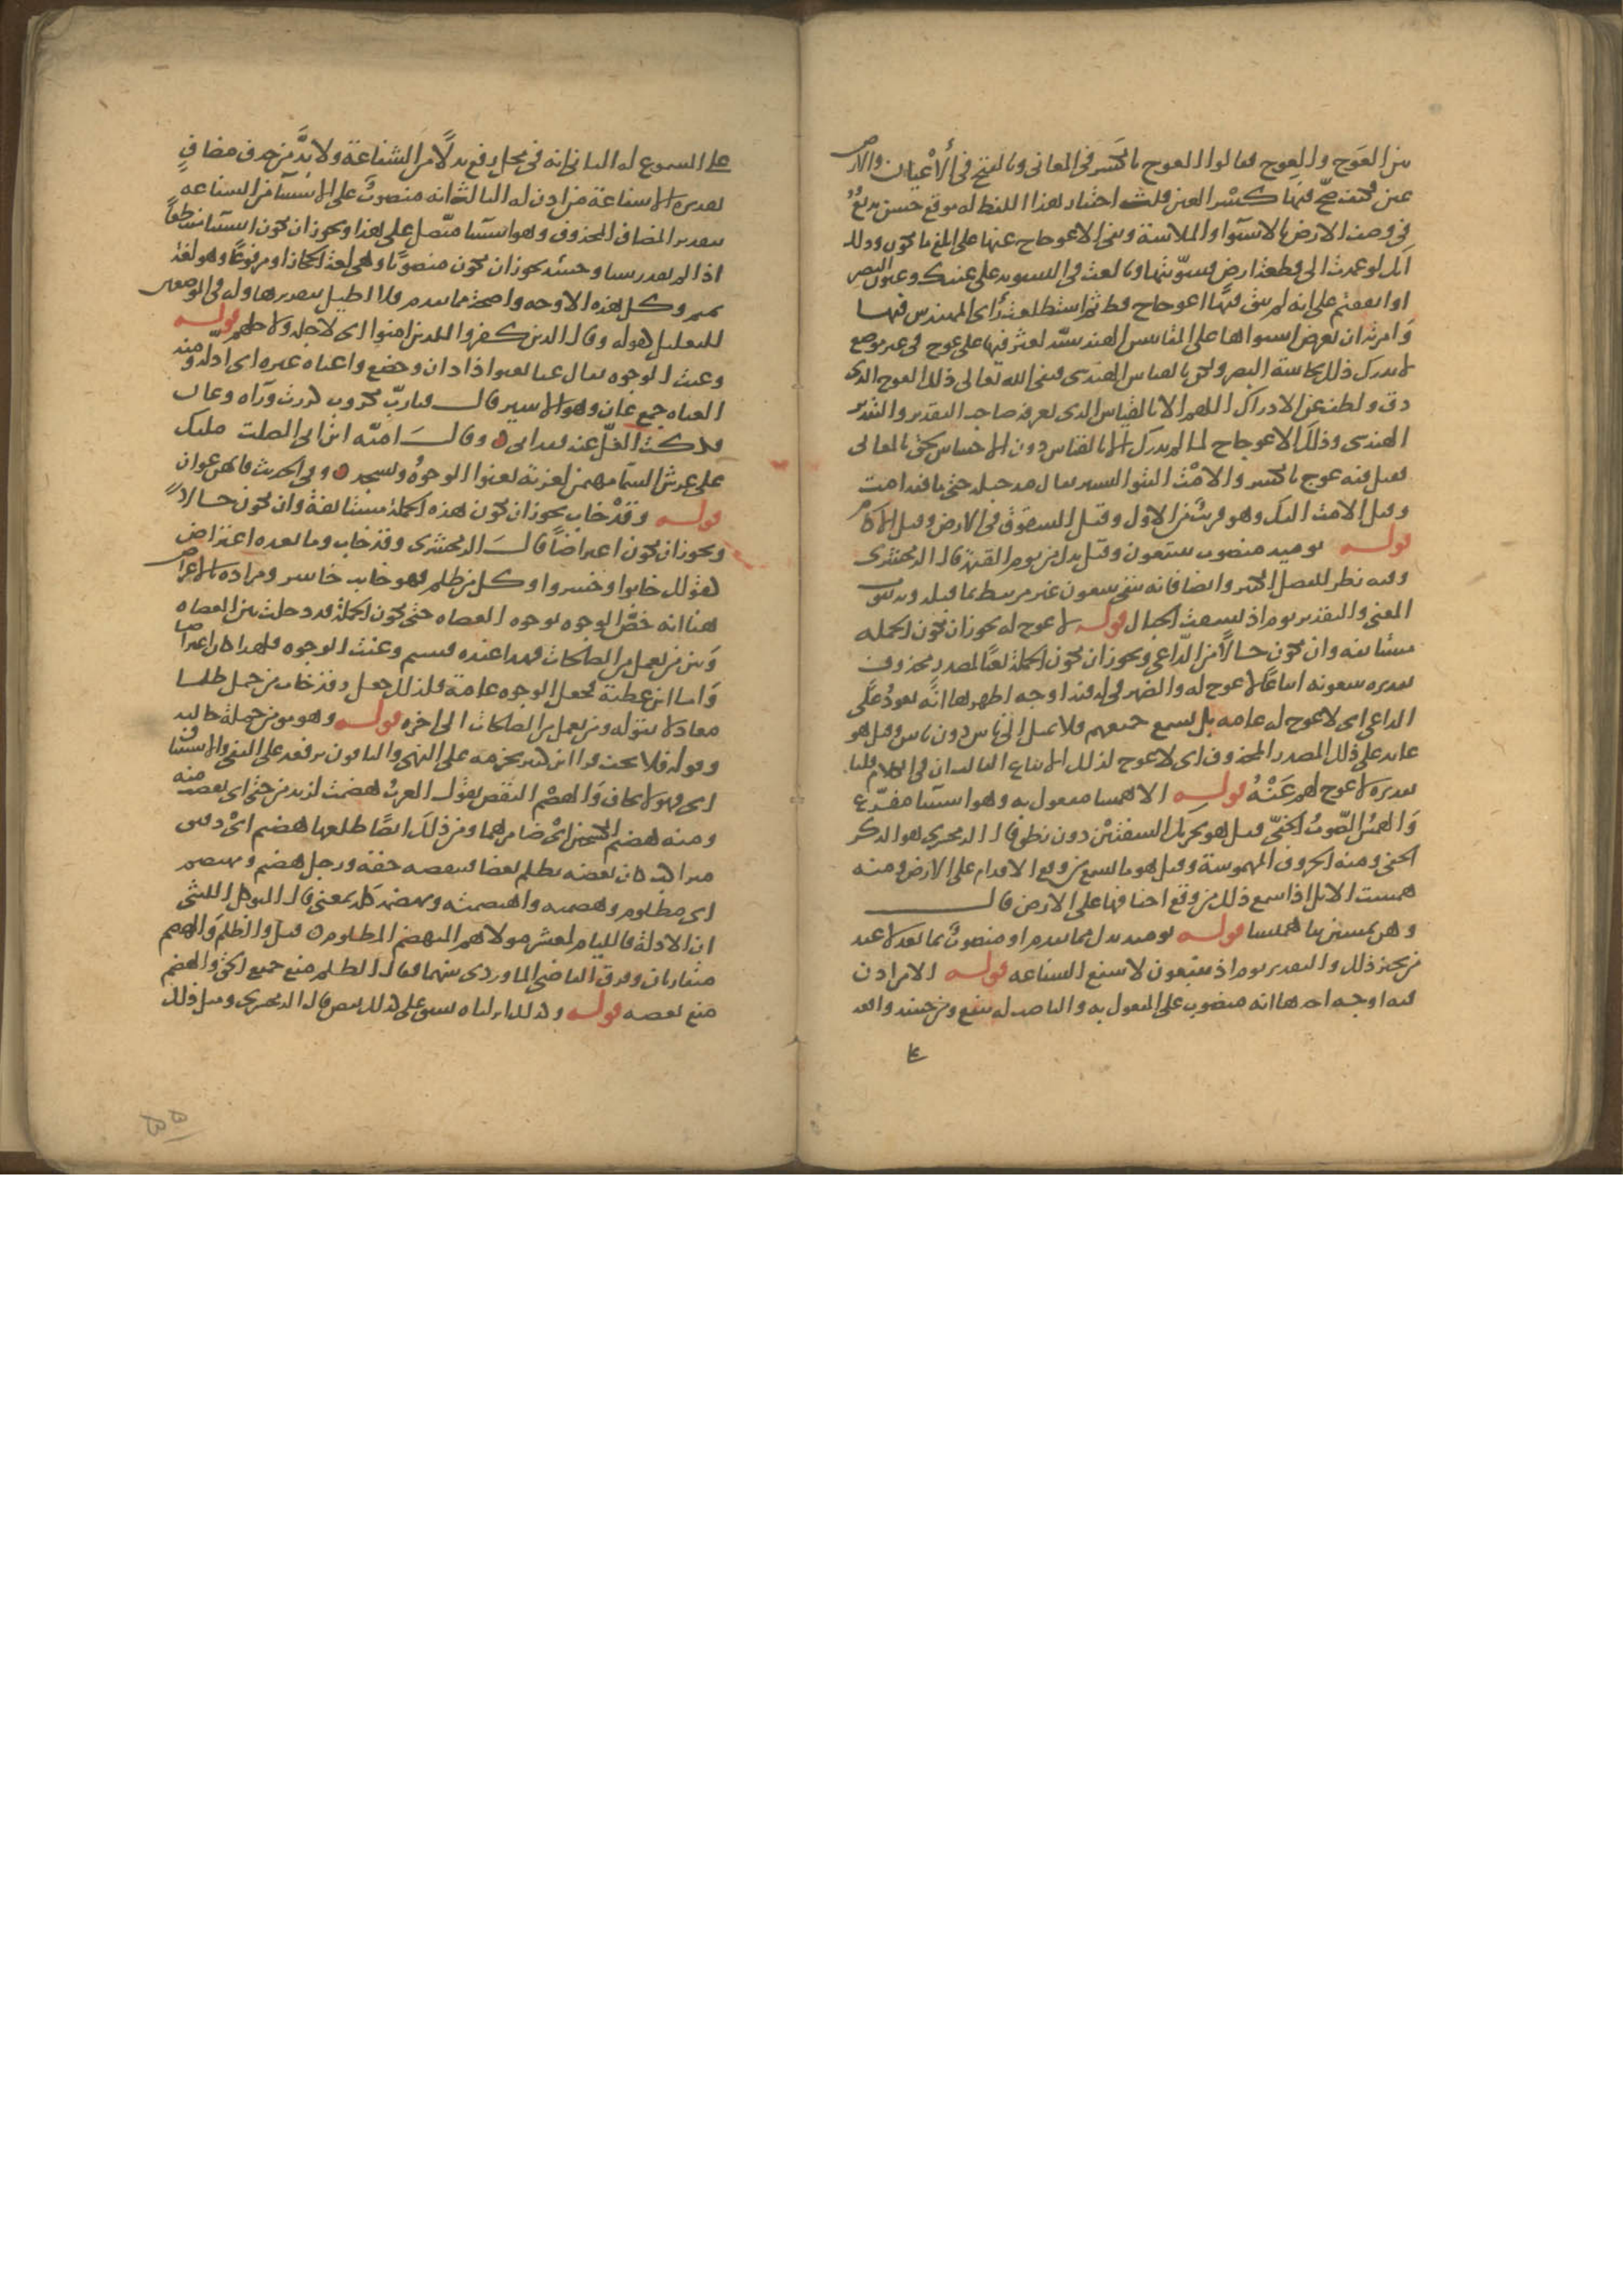 بين العَوج والعِوج فقالوا العوج بالكسر في المعاني وبالفتح في الأعيان والارض
عين فكيف صح فيها كسر العين قلت اختيار هذا اللفظ له موقع حسن بديع
في وصف الارض بالاستوا والملاسة ونفي الاعوجاج عنها على ابلغ ما يكون وذلك
انك لو عمدت الى قطعة ارض فسويتها وبالغت في التسويه على عينك وعيون البصر
او اتفقتم على انه لم يبق فيها اعوجاج قط ثم استطلعت رأى المهندس فيها
وامرته ان يعرض استواها على المقاييس الهندسية لعثر فيها على عوج في غير موضع
لا يدرك ذلك بحاسة البصر ولكن بالقياس الهندسي فنفى الله تعالى ذلك العوج الذى
دق ولطف عن الادراك اللهم الا بالقياس الذى يعرفه صاحب التقدير والتدبير
الهندسي وذلك الاعوجاج لما لم يدرك الا بالقياس دون الاحساس لحق بالمعاني
فقيل فيه عوج بالكسر والامت النتو اليسير يقال مد حبله حتى ما فيه امت
وقيل الامت التل وهو قريب من الاول وقيل الشقوق في الارض وقيل الاكام
قوله يوميذ منصوب بيتبعون وقيل بدل من يوم القيمة قاله الزمخشري
وفيه نظر للفصل الكثير وايضا فانه يبقى يتبعون غير مرتبط بما قبله وبه يفوت
المعنى والتقدير يوم اذ نسفت الجبال قوله لا عوج له يجوز ان تكون الجمله
مستانفه وان تكون حالاً من الداعي ويجوز ان تكون الجملة نعتا لمصدر محذوف
تقديره يتبعونه اتباعًا لا عوج له والضمير في له فيه اوجه اظهرها انه يعود على
الداعي اى لا عوج له عامه بل يسمع جميعهم فلا يميل الى ناس دون ناس وقيل هو
عايد على ذلك المصدر المحذوف اى لا عوج لذلك الاتباع الثالث ان في الكلام قلبا
تقديره لا عوج لهم عَنْهُ قوله الا همسا مفعول به وهو استثنا مفرّغ
والهمس الصّوتُ الخفيّ قيل هو تحريك الشفتين دون نطق قال الزمخشري هو الذكر
الخفي ومنه الحروف المهموسة وقيل هو ما يسمع من وقع الاقدام على الارض ومنه
همست الابل اذا سمع ذلك من وقع اخفافها على الارض قال
وهن يمشين بنا هميسا قوله يوميذ بدل مما تقدم او منصوبٌ بما بعد لا عند
من يجيز ذلك والتقدير يوم اذ يتبعون لا تنفع الشفاعه قوله الا من اذن
فيه اوجه احدها انه منصوب على المفعول به والناصب له تنفع ومن حينيذ واقعه
على المشفوع له الثاني انه في محل رفع بدلًا من الشفاعة ولا بدَّ من حذف مضافٍ
تقديره الا شفاعة من اذن له الثالث انه منصوبٌ على الاستثنا من الشفاعه
بتقدير المضاف المحذوف وهو استثنا متّصل على هذا ويجوز ان يكون استثنا منقطعاً
اذا لم تقدر شيا وحينئذ يجوز ان يكون منصوبًا وهي لغة الحجاز او مرفوعًا وهو لغة
تميم وكل هذه الاوجه واضحة مما تقدم فلا اطيل بتقديرها وله في الموضعين
للتعليل كقوله وقال الذين كفروا للذين امنوا اى لاجله ولاجلهم قوله
وعنت الوجوه يقال عنا يعنوا اذا ذل وخضع واعناه غيره اى اذله ومنه
العناه جمع عانٍ وهو الاسير قال فيا ربّ مكروب كررت وراه وعان
فككت الغلّ عنه ففداني ه وقال امية ابن ابي الصلت مليك
على عرش السما مهيمن لعزته تعنوا الوجوهُ وتسجد ه وفي الحديث فانهن عوان
قوله وقد خاب يجوز ان تكون هذه الجملة مستانفة وان تكون حالاً
ويجوز ان تكون اعتراضاً قال الزمخشري وقد خاب وما بعده اعتراض
كقولك خابوا وخسروا وكل من ظلم فهو خايب خاسر ومراده بالاعتراض
هنا انه خصّ الوجوه بوجوه العصاه حتى تكون الجملة قد دخلت بين العصاه
وبين من يعمل من الصالحات فهذا عنده قسيم وعنت الوجوه فلهذا كان اعتراضا
واما ابن عطية فجعل الوجوه عامة فلذلك جعل وقد خاب من حمل ظلما
معادلا بقوله ومن يعمل من الصالحات الى اخره قوله وهو مومن جملة حاليه
وقوله فلا يخف قرا ابن كثير بجزمه على النهى والباقون برفعه على النفي والاستيناف
اى فهو لا يخاف والهضم النقص تقول العرب هضمت لزيد من حقى اى نقصت منه
ومنه هضيم الكشحين اى ضامرهما ومن ذلك ايضًا طلعها هضيم اى دقيق
متراكب كان بعضه يظلم بعضا فينقصه حقه ورجل هضيم ومهتضم
اى مظلوم وهضمته واهتضمته وتهضمته كل بمعنى قال المتوكل الليثي
ان الاذلة والليام لمعشر مولاهم المتهضم المظلوم ه قيل والظلم والهضم
متقاربان وفرق القاضي الماوردى بينهما فقال الظلم منع جميع الحق والهضم
منع بعضه قوله وكذلك انزلناه نسق على كذلك نقص قال الزمخشري ومثل ذلك